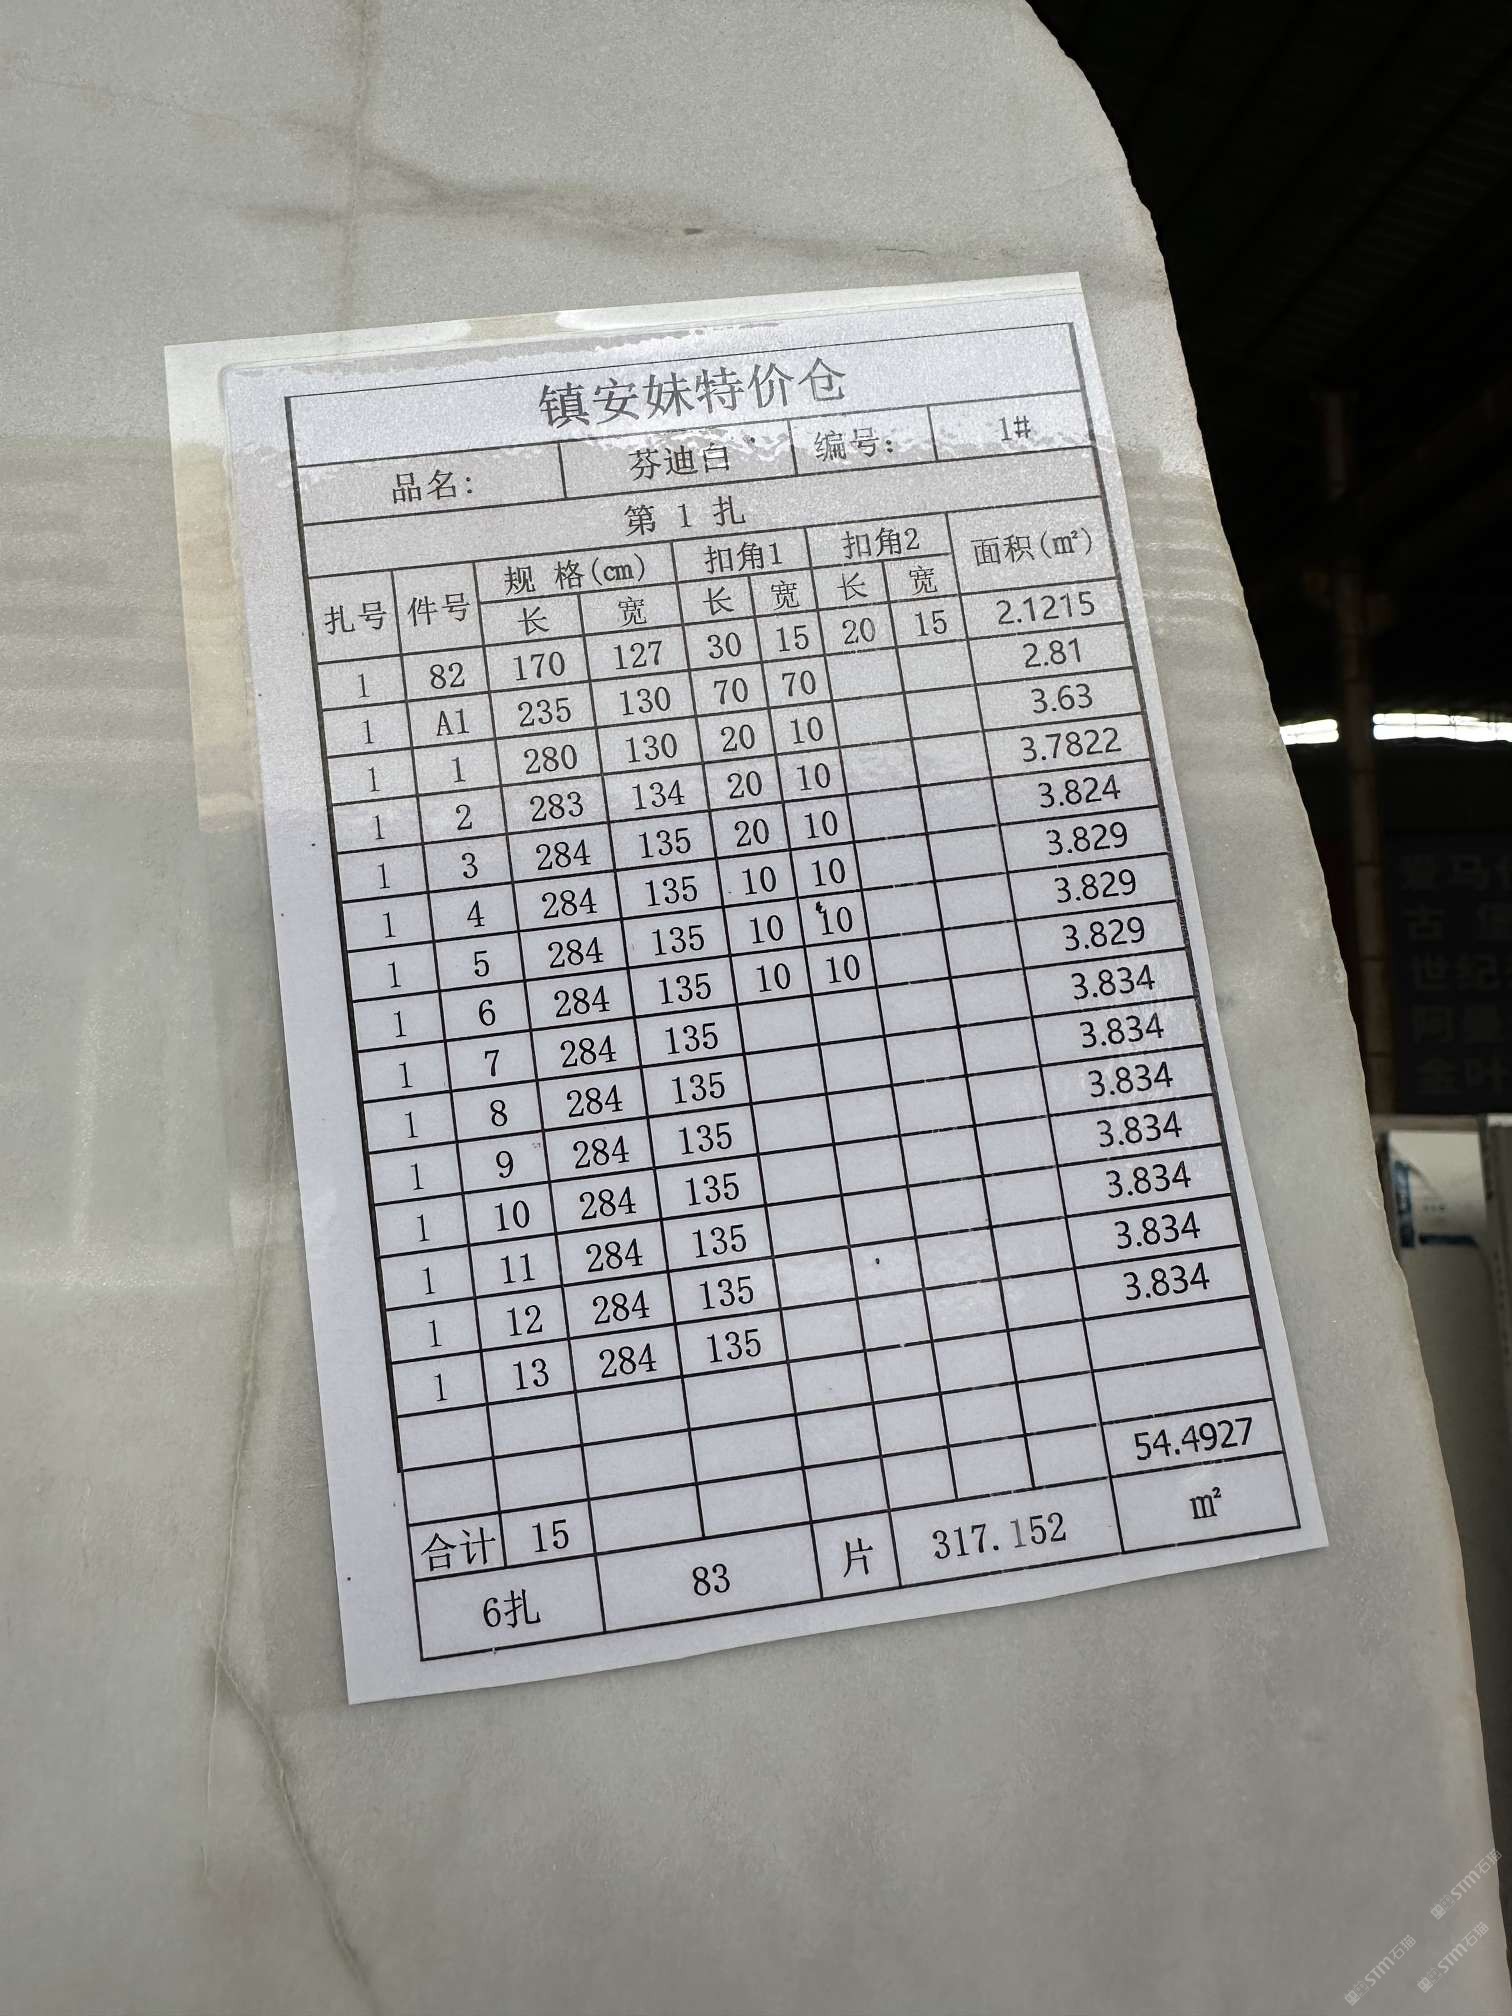 镇安妹特价仓
品名: 芬迪白 编号: 1#
第 1 扎
扎号 件号 规 格(cm) 扣角1 扣角2 面积(㎡)
长 宽 长 宽 长 宽
1 82 170 127 30 15 20 15 2.1215
1 A1 235 130 70 70 2.81
1 1 280 130 20 10 3.63
1 2 283 134 20 10 3.7822
1 3 284 135 20 10 3.824
1 4 284 135 10 10 3.829
1 5 284 135 10 10 3.829
1 6 284 135 10 10 3.829
1 7 284 135 3.834
1 8 284 135 3.834
1 9 284 135 3.834
1 10 284 135 3.834
1 11 284 135 3.834
1 12 284 135 3.834
1 13 284 135 3.834
合计 15 54.4927
6扎 83 片 317.152 ㎡
古堡
世纪
金叶
STM石猫
STM石猫
STM石猫